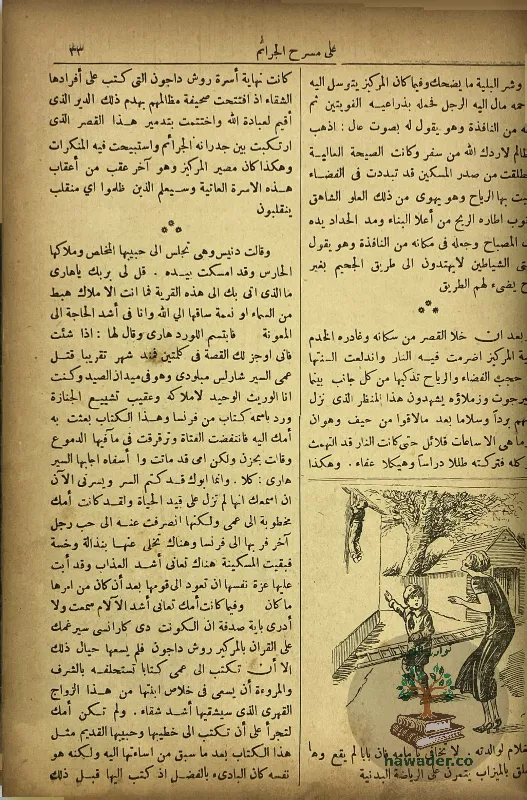 على مسرح الجرائم
٣٣
وشر البلية ما يضحك وفيما كان المركيز يتوسل اليه
مال اليه الرجل فحمله بذراعيه القويتين ثم
من النافذة وهو يقول له بصوت عال : اذهب
ظالم لاردك الله من سفر وكانت الصيحة العالية
من صدر المسكين قد تبددت في الفضاء
بها الرياح وهو يهوى من ذلك العلو الشاهق
اطاره الريح من أعلا البناء ومد الحداد يده
المصباح وجعله في مكانه من النافذة وهو يقول
الشياطين لايهتدون الى طريق الجحيم بغير
يضىء لهم الطريق
بعد ان خلا القصر من سكانه وغادره الخدم
المركيز اضرمت فيه النار واندلعت السنتها
حجب الفضاء والرياح تذكيها من كل جانب بينما
وزملاؤه يشهدون هذا المنظر الذى نزل
برداً وسلاما بعد مالاقوا من حيف وهوان
ما هى الا ساعات قلائل حتى كانت النار قد التهمت
كله فتركته طللا دارساً وهيكلا عفاء . وهكذا
لوالدته . لا تخافى يا مامه فان بابا لم يقع وها
بالميزاب يتمرن على الرياضة البدنية
كانت نهاية أسرة روش داجون التى كتب على أفرادها
الشقاء اذ افتتحت صحيفة مظالمهم بهدم ذلك الدير الذى
أقيم لعبادة الله واختتمت بتدمير هذا القصر الذى
ارتكبت بين جدرانه الجرائم واستبيحت فيه المنكرات
وهكذا كان مصير المركيز وهو آخر عقب من أعقاب
هذه الاسرة العاتية وسيعلم الذين ظلموا اي منقلب
ينقلبون
وقالت دنيس وهى تجلس الى حبيبها المخلص وملاكها
الحارس وقد امسكت بيده . قل لى بربك ياهارى
ما الذى اتى بك الى هذه القرية فما انت الا ملاك هبط
من السماء او نعمة ساقها الي الله وانا فى أشد الحاجة الى
المعونة فابتسم اللورد هارى وقال لها : اذا شئت
فانى اوجز لك القصة فى كلمتين فمنذ شهر تقريبا قتل
عمى السير شارلس ميلودى وهو فى ميدان الصيد وكنت
انا الوريث الوحيد لاملاكه وعقيب تشييع الجنازة
ورد باسمه كتاب من فرنسا وهذا الكتاب بعثت به
أمك اليه فانتفضت الفتاة وترقرقت فى مآقيها الدموع
وقالت بحزن ولكن امى قد ماتت وا أسفاه اجابها السير
هارى : كلا . وانما ابوك قد كتم السر ويسرنى الآن
ان اسمعك انها لم تزل على قيد الحياة ولقد كانت أمك
مخطوبة الى عمى ولكنها انصرفت عنه الى حب رجل
آخر فر بها الى فرنسا وهناك تخلى عنها بنذالة وخسة
فبقيت المسكينة هناك تعانى أشد العذاب وقد أبت
عليها عزة نفسها ان تعود الى قومها بعد أن كان من امرها
ماكان وفيما كانت أمك تعانى أشد الآلام سمعت ولا
أدرى باية صدفة ان الكونت دى كارانسى سيرغمك
على القران بالمركيز روش داجون فلم يسعها حيال ذلك
إلا أن تكتب الى عمى كتابا تستحلفه بالشرف
والمروءة أن يسعى فى خلاص ابنتها من هذا الزواج
القهرى الذى سيشقيها أشد شقاء . ولم تكن أمك
لتجرأ على أن تكتب الى خطيبها وحبيبها القديم مثل
هذا الكتاب بعد ما سبق من اساءتها اليه ولكنه هو
نفسه كان البادىء بالفضل اذ كتب اليها قبل ذلك
hawader.co